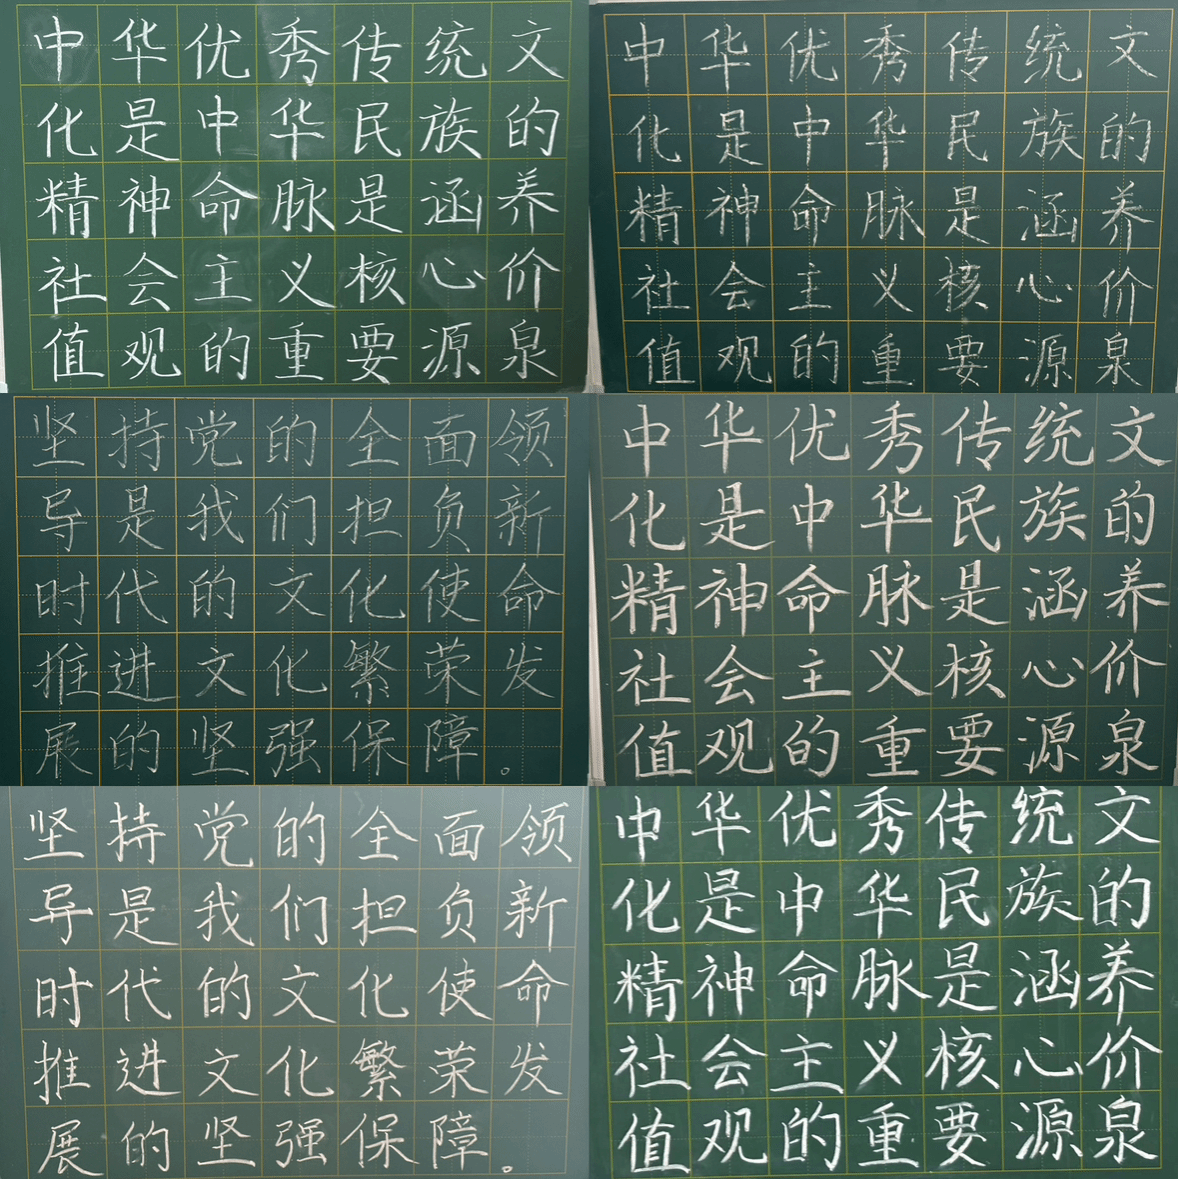 中华优秀传统文
化是中华民族的
精神命脉是涵养
社会主义核心价
值观的重要源泉
中华优秀传统文
化是中华民族的
精神命脉是涵养
社会主义核心价
值观的重要源泉
坚持党的全面领
导是我们担负新
时代的文化使命
推进文化繁荣发
展的坚强保障。
中华优秀传统文
化是中华民族的
精神命脉是涵养
社会主义核心价
值观的重要源泉
坚持党的全面领
导是我们担负新
时代的文化使命
推进文化繁荣发
展的坚强保障。
中华优秀传统文
化是中华民族的
精神命脉是涵养
社会主义核心价
值观的重要源泉